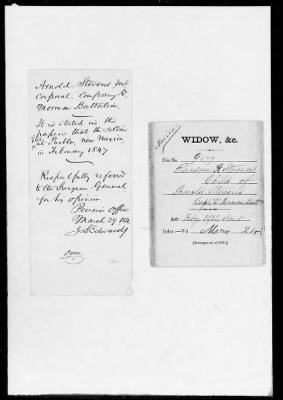 Arnold Stevens
Corporal, Company D
Mormon Battalion.
It is stated in the
papers that the soldier
at Pueblo, new Mexico,
in February 1847
Respectfully referred
to the Surgeon General
for his opinion.
Pension Office
March 29
J. L. Edwards
over
Mexican
WIDOW, &c.
File No.
Ransom A Stevens
Child of
Arnold Stevens
Corpl. D. Mormon Batt
Act:
Index:—Vol. Page
[Arrangement of 1870.]